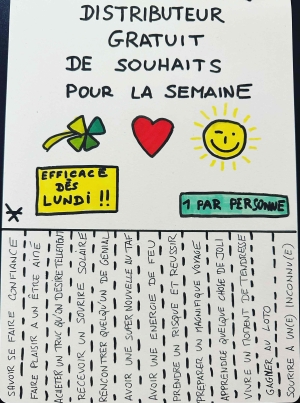 DISTRIBUTEUR
GRATUIT
DE SOUHAITS
POUR LA SEMAINE
EFFICACE
DÈS
LUNDI !!
1 PAR PERSONNE
SAVOIR SE FAIRE CONFIANCE
FAIRE PLAISIR A UN ÊTRE AIMÉ
ACHETER UN TRUC QU'ON DÉSIRE TELLEMENT
RECEVOIR UN SOURIRE SOLAIRE
RENCONTRER QUELQU'UN DE GÉNIAL
AVOIR UNE SUPER NOUVELLE AU TAF
AVOIR UNE ENERGIE DE FEU
PRENDRE UN RISQUE ET RÉUSSIR
PRÉPARER UN MAGNIFIQUE VOYAGE
APPRENDRE QUELQUE CHOSE DE JOLI
VIVRE UN MOMENT DE TENDRESSE
GAGNER AU LOTO
SOURIRE A UN(E) INCONNU(E)